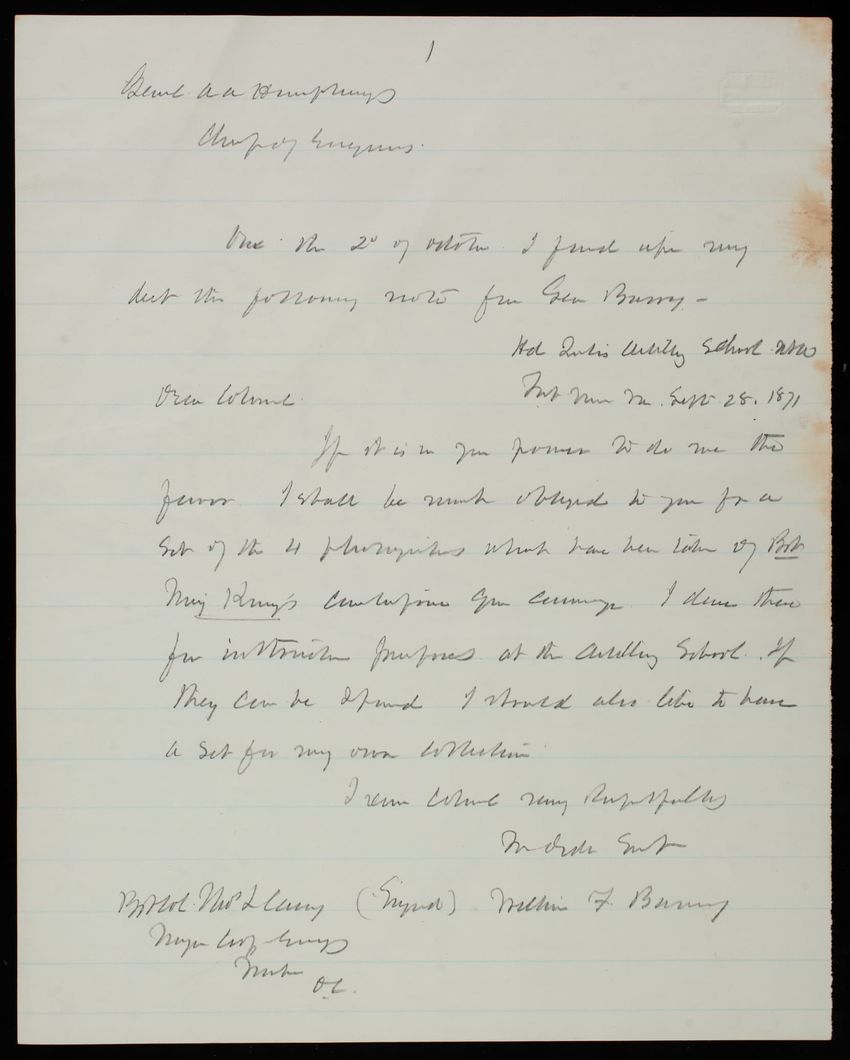 1
Genl A A Humphreys
Chief of Engineers.
On the 2d of October I found upon my
desk the following note from Gen Barry –
Hd Qutrs Artillery School USA
Fort Monroe Va. Sept 28. 1871
Dear Colonel
If it is in your power to do me the
favor I shall be much obliged to you for a
set of the 4 photographs which have been taken of Bvt
Maj King's counterpoise gun carriage. I desire them
for instruction purposes at the Artillery School. If
they can be spared I should also like to have
a set for my own collection
I remain Colonel very respectfully
Your Obdt Servt
Bvt Col. Thos L Casey (Signed) William F. Barry
Major Corps Engrs
D.C.